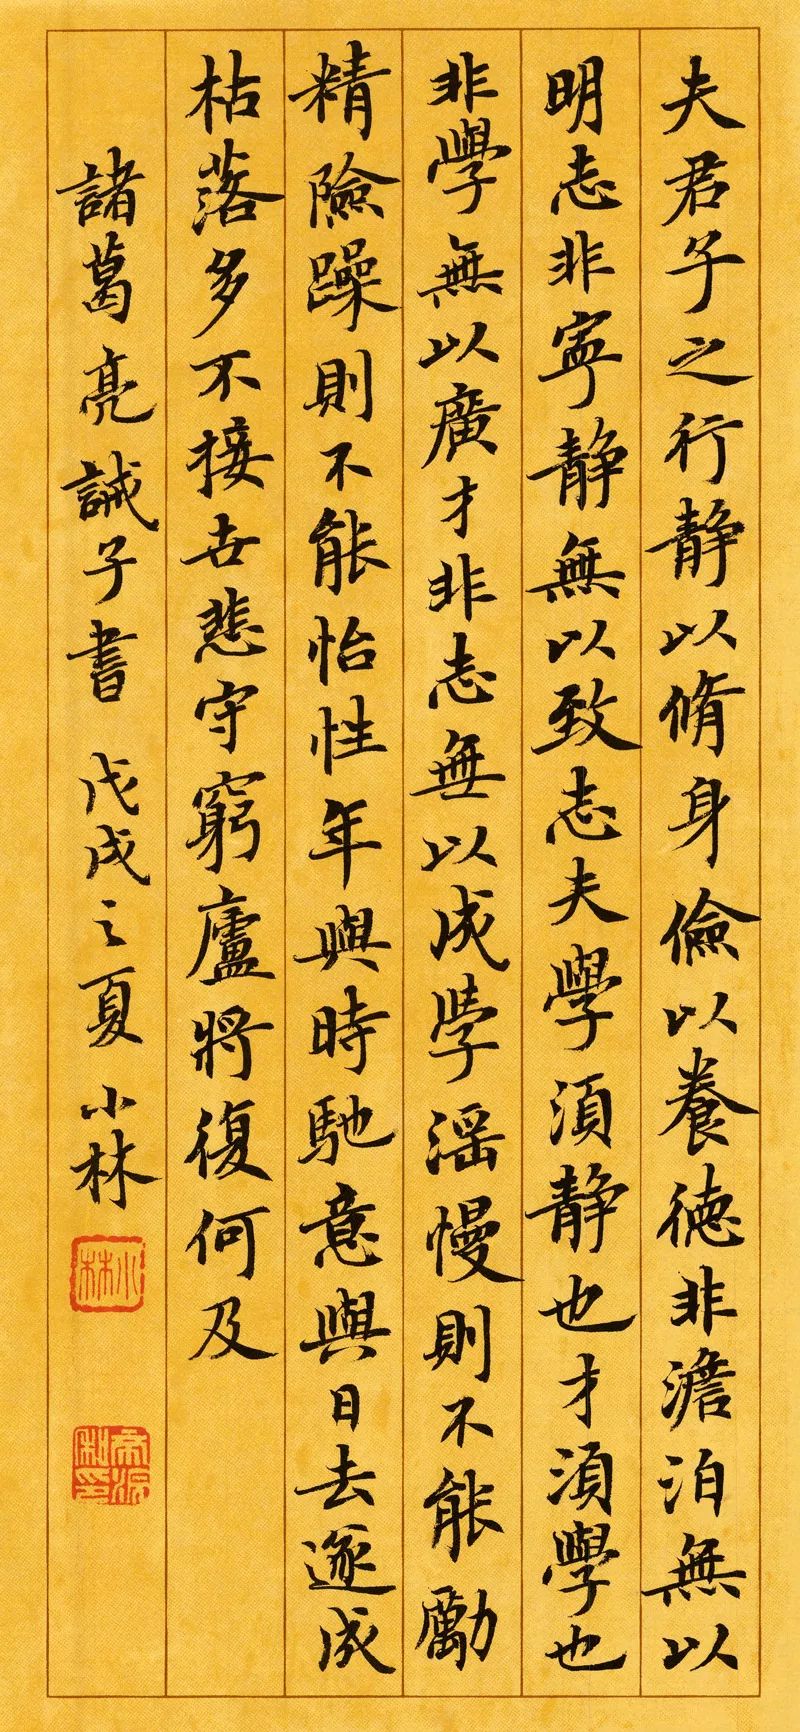 夫君子之行静以脩身儉以養德非澹泊無以
明志非寧静無以致志夫學須静也才須學也
非學無以廣才非志無以成學滛慢則不能勵
精險躁則不能怡性年與時馳意與日去遂成
枯落多不接世悲守窮廬將復何及
諸葛亮誡子書 戊戌之夏 小林
小林